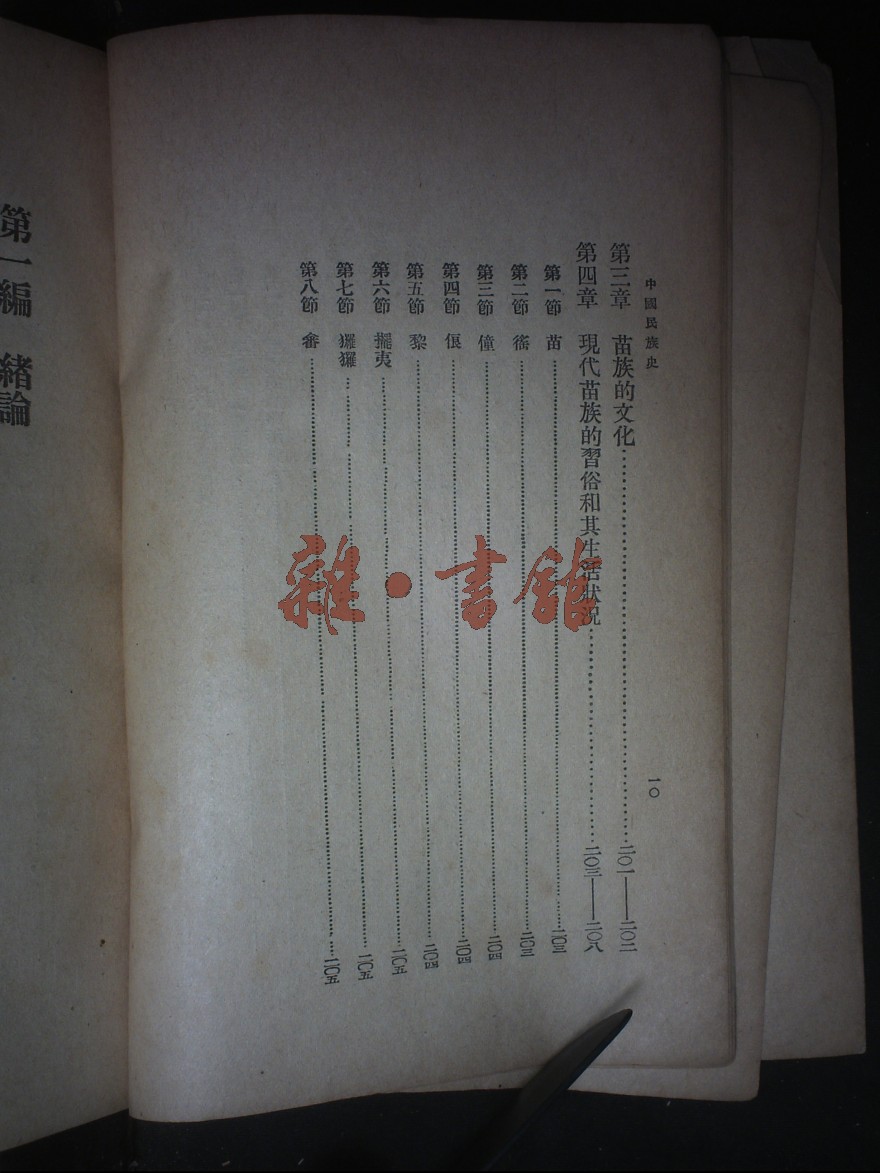 中國民族史
一〇
第三章 苗族的文化……二〇一——二〇二
第四章 現代苗族的習俗和其生活狀況……二〇三——二〇八
第一節 苗……二〇三
第二節 徭……二〇三
第三節 僮……二〇四
第四節 𠊎……二〇四
第五節 黎……二〇四
第六節 擺夷……二〇五
第七節 玀玀……二〇五
第八節 番……二〇五
第一編 緒論
雜·書館